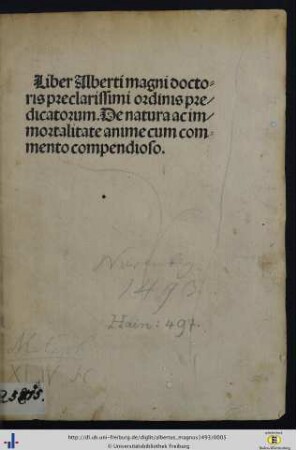 Liber Alberti magni docto-
ris preclarissimi ordinis pre/
dicatorum. De natura ac im/
mortalitate anime cum com-
mento compendioso.
1493.
Hain: 497.
http://dl.ub.uni-freiburg.de/diglit/albertus_magnus1493/0005
© Universitätsbibliothek Freiburg